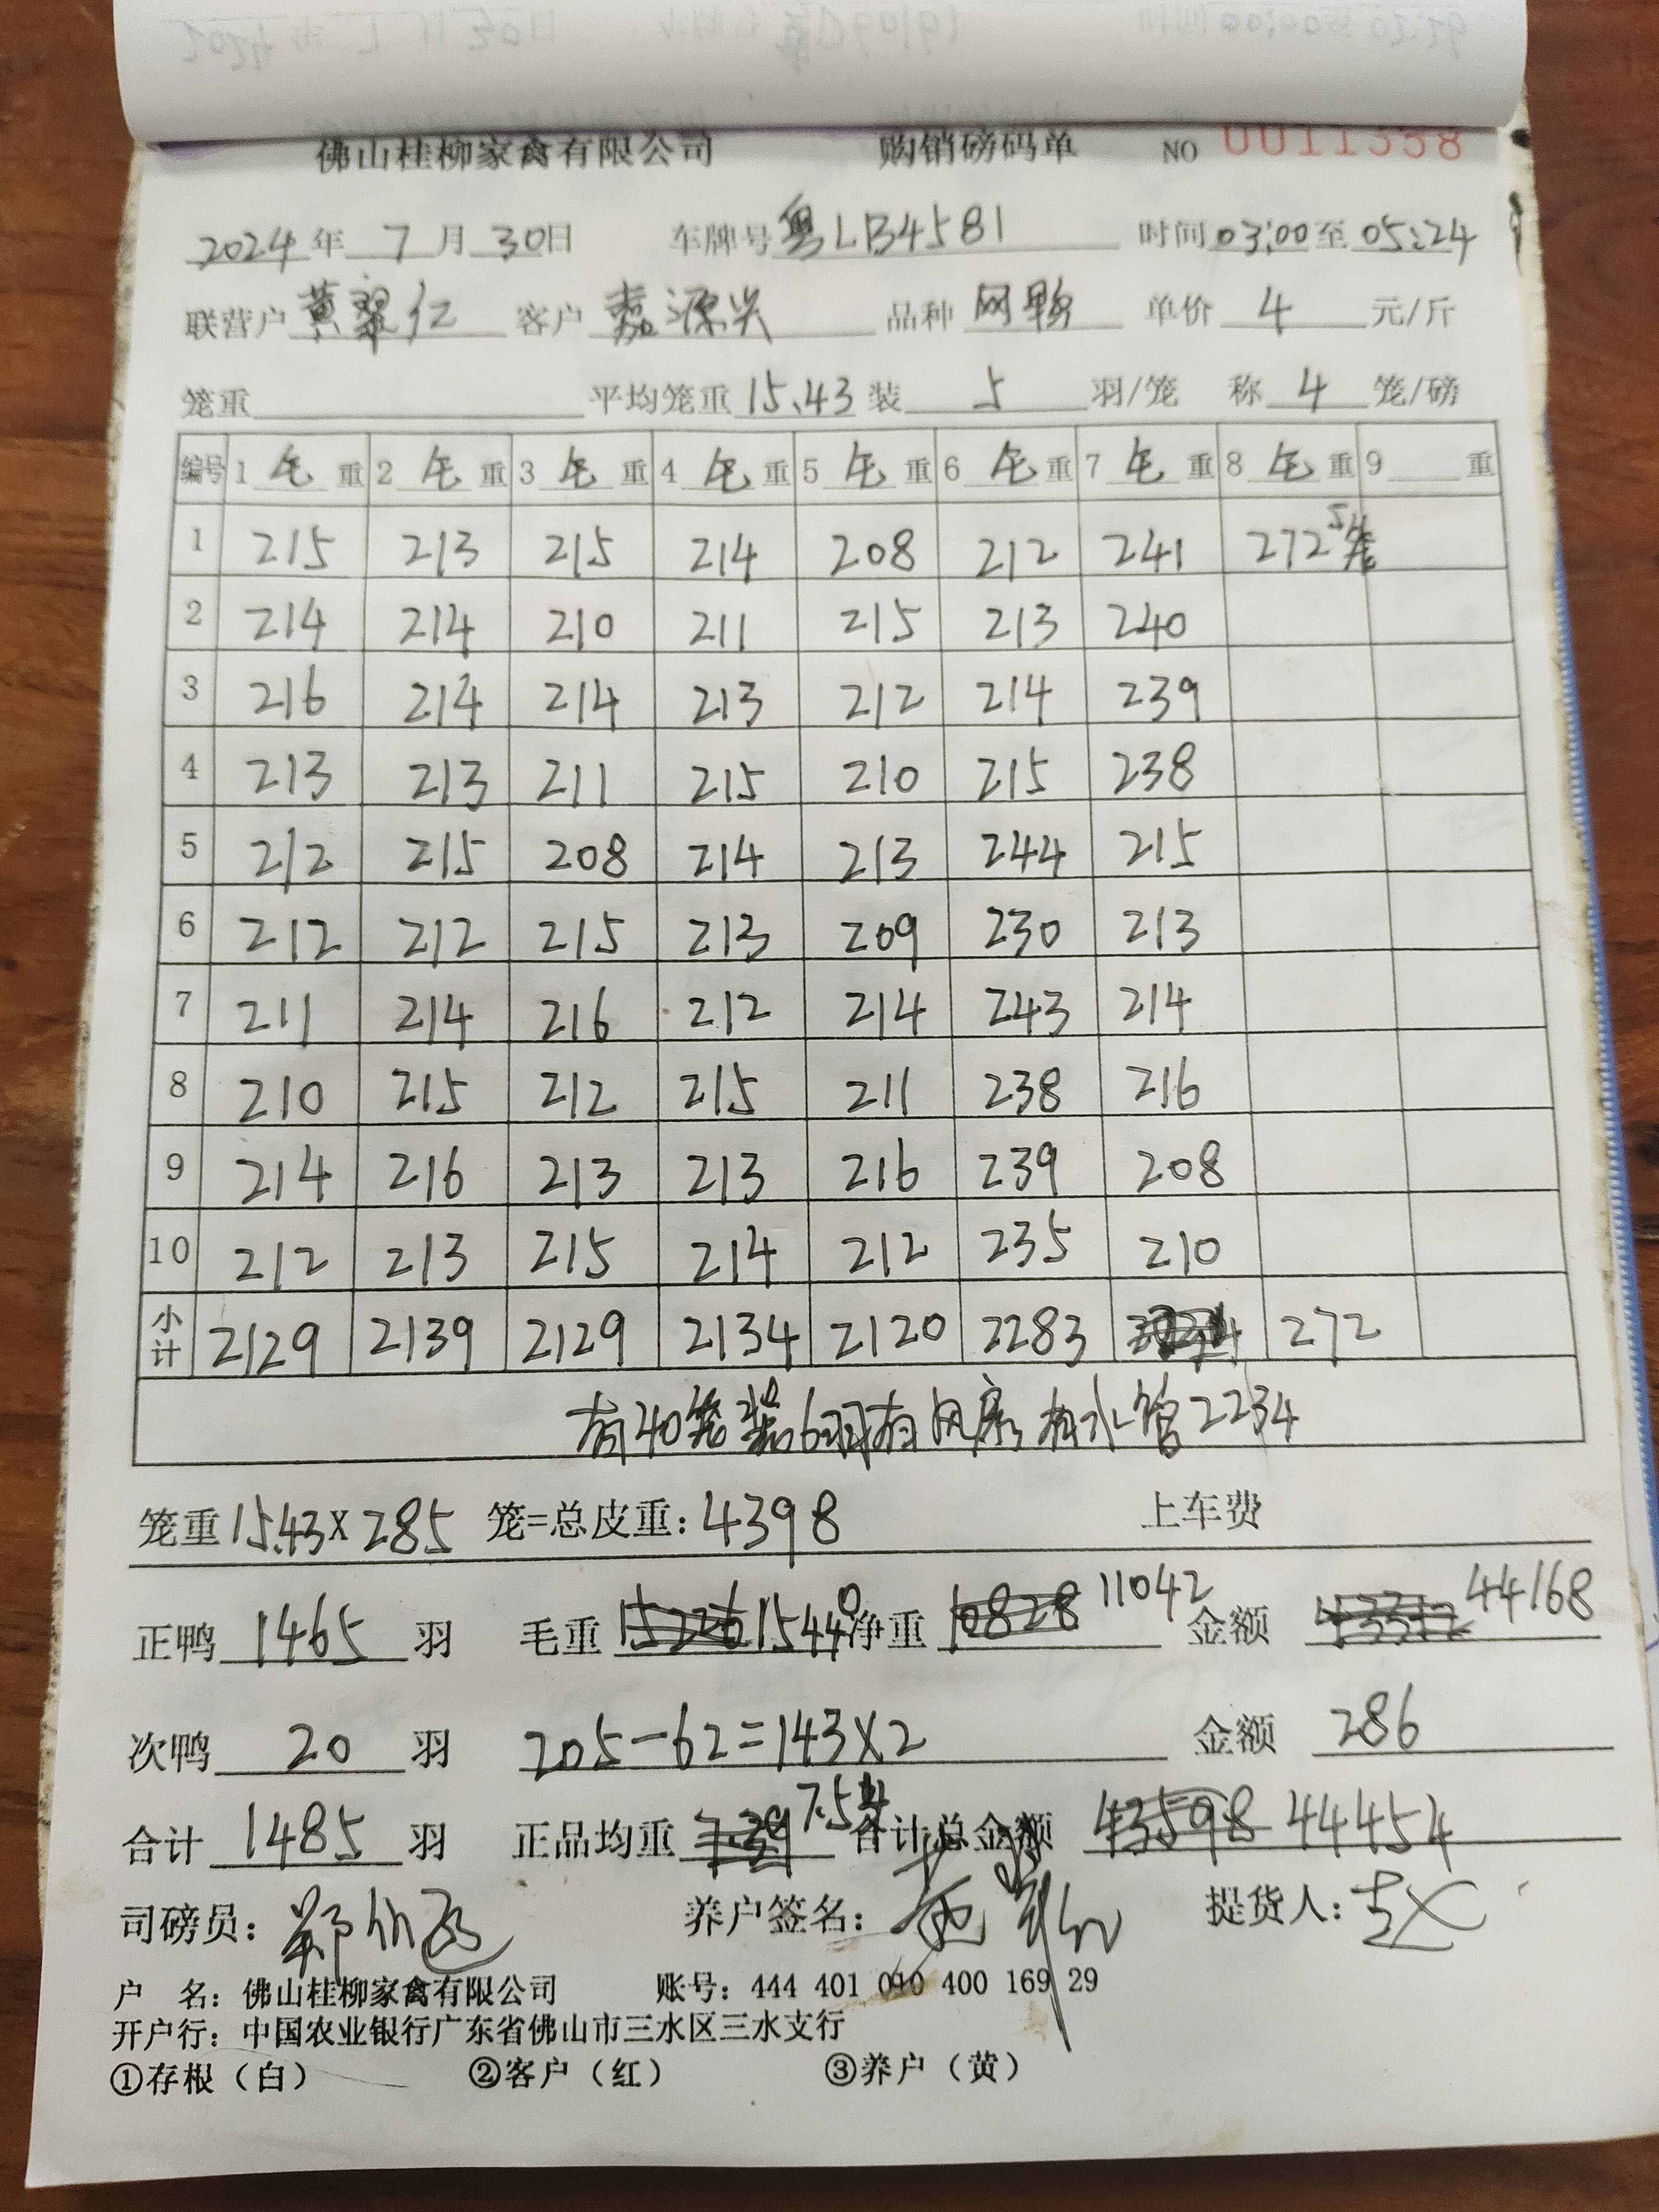 佛山桂柳家禽有限公司 购销磅码单 NO 0011358
2024年 7月 30日 车牌号 粤LB4581 时间 03:00 至 05:24
联营户 黄翠仁 客户 嘉源兴 品种 网鸭 单价 4 元/斤
笼重 平均笼重 15.43 装 5 羽/笼 称 4 笼/磅
编号 1 毛 重 2 毛 重 3 毛 重 4 毛 重 5 毛 重 6 毛 重 7 毛 重 8 毛 重 9 重
1 215 213 215 214 208 212 241 272 5笼
2 214 214 210 211 215 213 240
3 216 214 214 213 212 214 239
4 213 213 211 215 210 215 238
5 212 215 208 214 213 244 215
6 212 212 215 213 209 230 213
7 211 214 216 212 214 243 214
8 210 215 212 215 211 238 216
9 214 216 213 213 216 239 208
10 212 213 215 214 212 235 210
小计 2129 2139 2129 2134 2120 2283 272
有40笼装6羽有风扇 有水管 2234
笼重 15.43 x 285 笼=总皮重: 4398 上车费
正鸭 1465 羽 毛重 15226 15440 净重 10828 11042 金额 43312 44168
次鸭 20 羽 205-62=143x2 金额 286
合计 1485 羽 正品均重 7.39 7.54 合计总金额 43598 44454
司磅员: 养户签名: 提货人: 赵
户 名: 佛山桂柳家禽有限公司 账号: 444 401 040 400 169 29
开户行: 中国农业银行广东省佛山市三水区三水支行
①存根（白） ②客户（红） ③养户（黄）